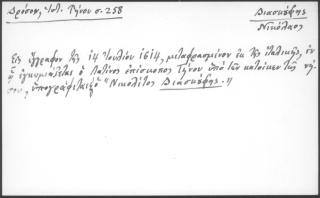 Δρόσου, Ἱστ. Τήνου σ. 258
Διασκέφης
Νικόλαος
Εἰς ἔγγραφον τῆς 14 Ἰουλίου 1614, μεταφρασμένον ἐκ τῆς ἰταλικῆς, ἐν
ᾧ ἐγκωμιάζεται ὁ Λατῖνος ἐπίσκοπος Τήνου ὑπὸ τῶν κατοίκων τῆς νή-
σου, ὑπογράφεται ὁ "Νικολίτος Διασκέφης."